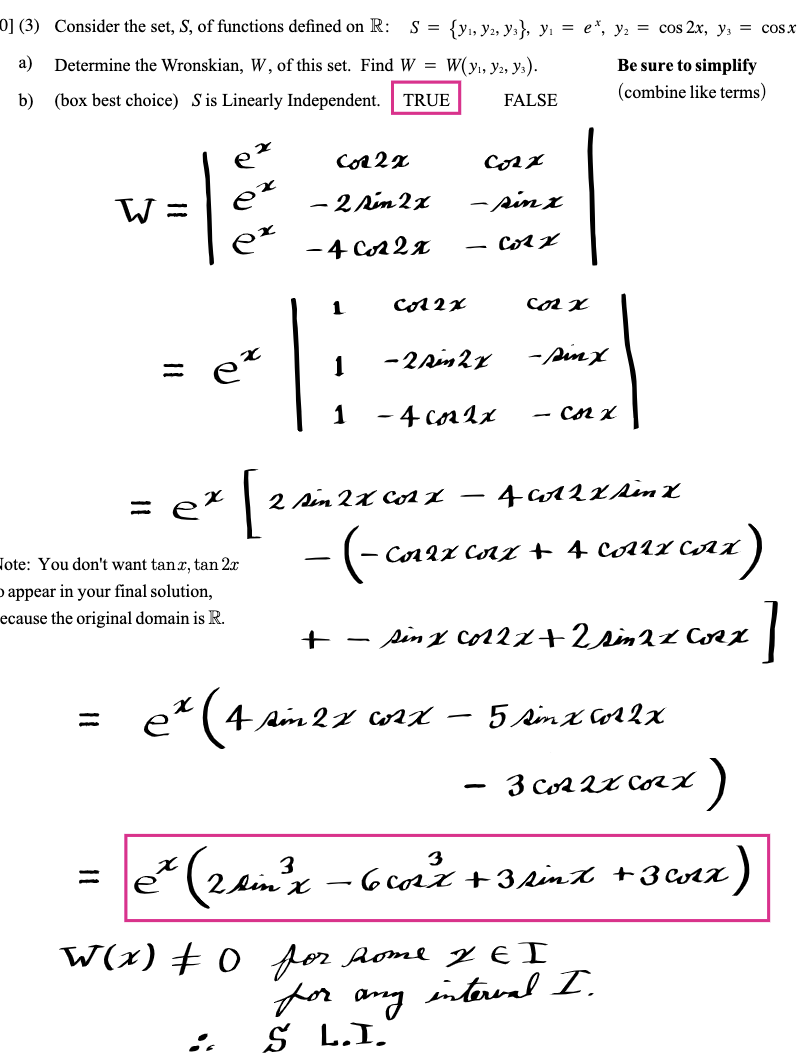 0] (3) Consider the set, S, of functions defined on ℝ: S = {y₁, y₂, y₃}, y₁ = eˣ, y₂ = cos 2x, y₃ = cos x
a) Determine the Wronskian, W, of this set. Find W = W(y₁, y₂, y₃). Be sure to simplify
(combine like terms)
b) (box best choice) S is Linearly Independent. TRUE FALSE
W = | eˣ cos 2x cos x |
| eˣ - 2 sin 2x - sin x |
| eˣ - 4 cos 2x - cos x |
= eˣ | 1 cos 2x cos x |
| 1 - 2 sin 2x - sin x |
| 1 - 4 cos 2x - cos x |
= eˣ [ 2 sin 2x cos x - 4 cos 2x sin x
- (- cos 2x cos x + 4 cos 2x cos x)
+ - sin x cos 2x + 2 sin 2x cos x ]
ote: You don't want tan x, tan 2x
o appear in your final solution,
ecause the original domain is ℝ.
= eˣ ( 4 sin 2x cos x - 5 sin x cos 2x
- 3 cos 2x cos x )
= eˣ ( 2 sin³x - 6 cos³x + 3 sin x + 3 cos x )
W(x) ≠ 0 for some x ∈ I
for any interval I.
∴ S L.I.